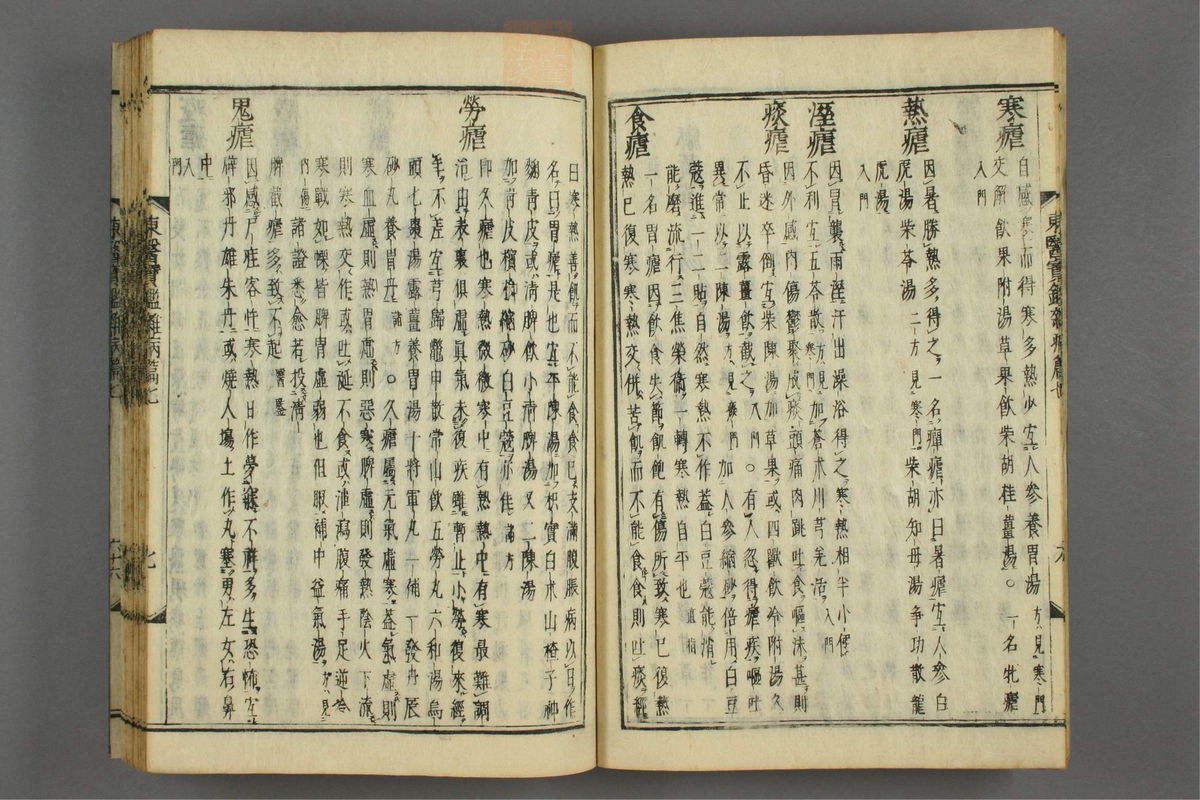 寒瘧 自感寒而得寒多熱少宜人參養胃湯方見寒門
交解飲果附湯草果飲柴胡桂薑湯○一名牝瘧
入門
熱瘧 因暑勝熱多得之一名癉瘧亦曰暑瘧宜人參白
虎湯柴苓湯二方見寒門柴胡知母湯爭功散龍
虎湯入門
濕瘧 因冒襲雨溼汗出澡浴得之寒熱相半小便
不利宜五苓散方見寒門加蒼朮川芎羌活入門
痰瘧 因外感內傷鬱聚成痰頭痛肉跳吐食嘔沫甚則
昏迷卒倒宜柴陳湯加草果或四獸飲冷附湯久
不止以露薑飲截之入門○有人忽得瘧疾嘔吐
異常以二陳湯方見痰門加人參縮砂倍用白豆
蔻進一二貼自然寒熱不作蓋白豆蔻能消
能磨流行三焦榮衛一轉寒熱自平也直指
食瘧 一名胃瘧因飮食失節飢飽有傷所致寒已復熱
熱已復寒寒熱交併苦飢而不能食食則吐痰
曰寒熱善飢而不能食食已支滿腹脹病以日作
名曰胃瘧是也宜平陳湯加枳實白朮山楂子神
麴靑皮或淸脾飮小淸脾湯又二陳湯
加靑皮檳榔縮砂白豆蔻亦佳諸方
勞瘧 卽久瘧也寒熱微微寒中有熱熱中有寒最難調
治由表裏俱虛眞氣未復疾雖暫止小勞復來經
年不差宜芎歸鱉甲散常山飮五勞丸六和湯烏
頭七棗湯露薑養胃湯十將軍丸一補一發丹辰
砂丸養胃丹諸方○久瘧屬元氣虛寒蓋氣虛則
寒血虛則熱胃虛則惡寒脾虛則發熱陰火下流
則寒熱交作或吐涎不食或泄瀉腹痛手足逆冷
寒戰如慄皆脾胃虛弱也但服補中益氣湯方見
內傷諸證悉愈若投淸
脾截瘧多致不起醫鑑
鬼瘧 因感尸疰客忤寒熱日作夢寐不祥多生恐怖宜
辟邪丹雄朱丹或燒人場土作丸塞男左女右鼻
中入門
東醫寶鑑雜病篇七